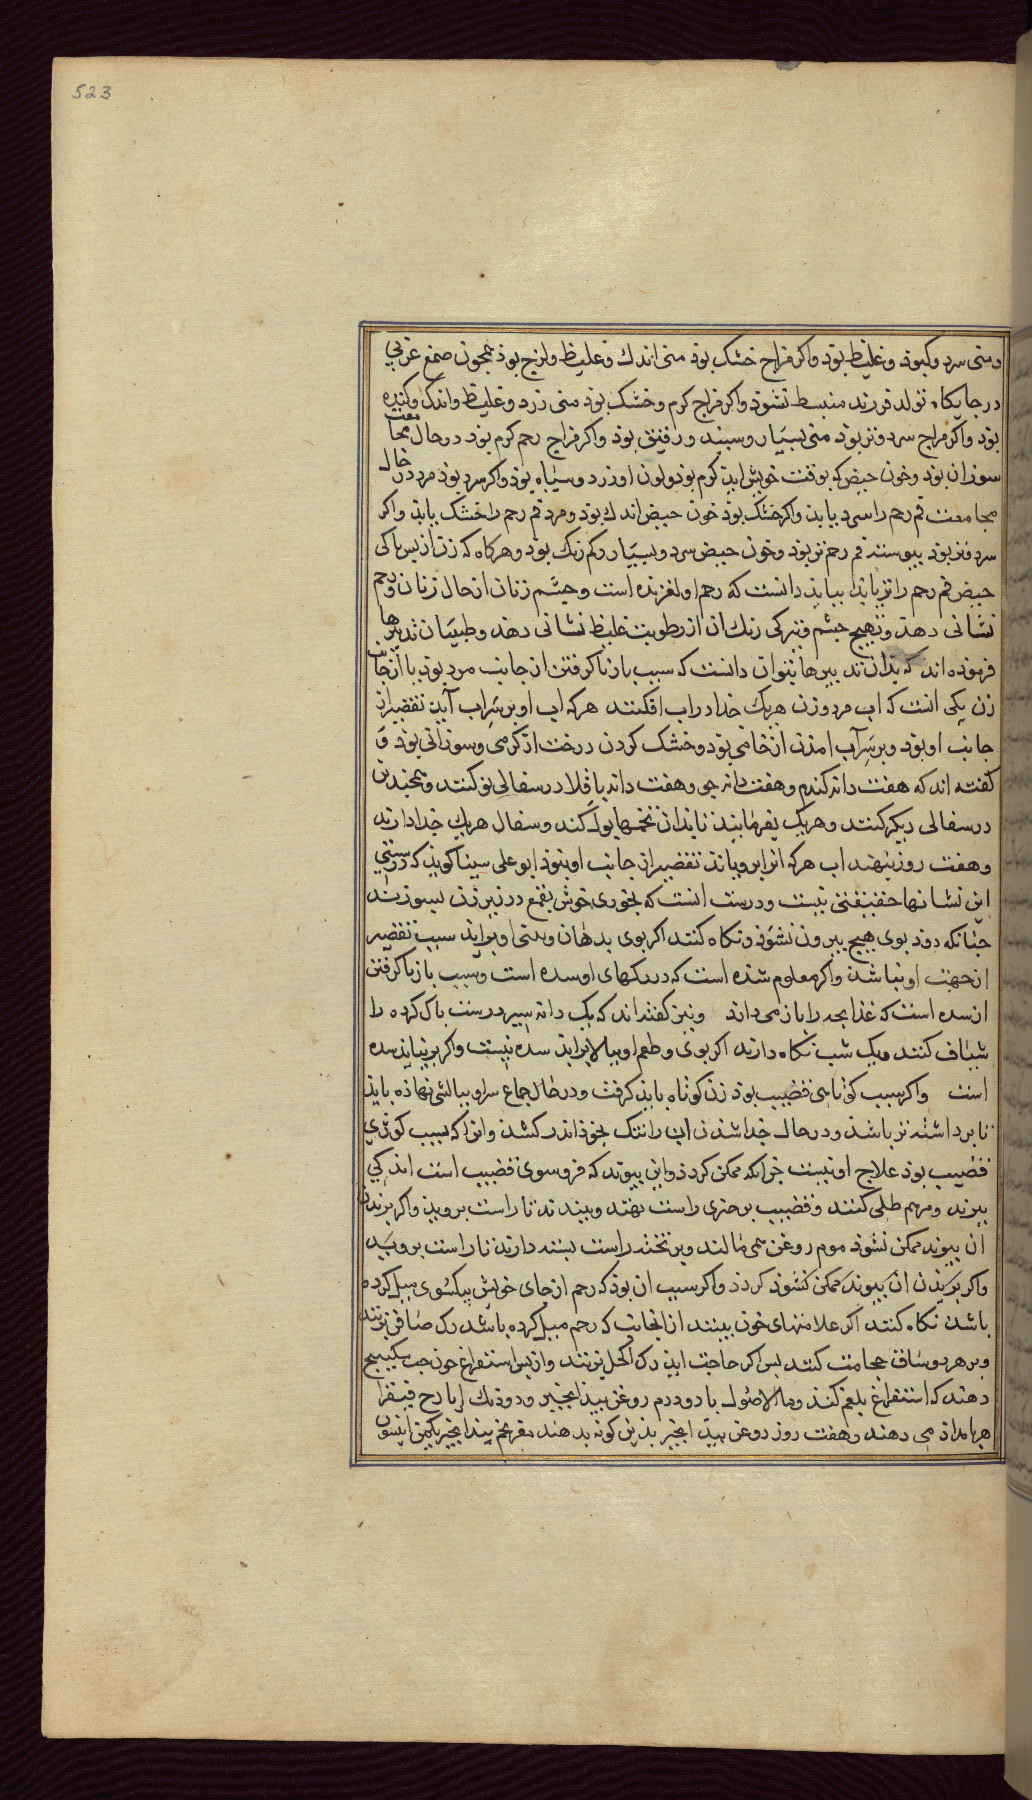 523
و منی سرد و کبوذ و غلیظ بوذ واکر مزاج خشک بوذ منی اندک و غلیظ ولزج بوذ همجون صمغ عربی
در جایکاه تولد فرزند منبسط نشوذ واکر مزاج کرم و خشک بوذ منی زرد و غلیظ واندک وکنده
بوذ واکر مزاج سرد و تر بوذ منی بسیار و سبید و رقیق بوذ واکر مزاج رحم کرم بوذ در حال مجامعت
سوزان بوذ و خون حیض که بوقت خویش ایذ کرم بوذ ولون او زرد و سیاه بوذ واکر سرد بوذ مرد در حال
مجامعت فم رحم را سرد یابذ واکر خشک بوذ خون حیض اندک بوذ ومرد فم رحم را خشک یابذ واکر
سرد و تر بوذ بیوسته فم رحم تر بوذ وخون حیض سرد و بسیار و کم رنک بوذ و هرکاه که زن از بس باکی
حیض فم رحم را تر یابذ ببایذ دانست که رحم او لغزنده است و جشم زنان از حال زنان و رحم
نشانی دهذ و تهیج جشم و تیرکی رنک ان از رطوبت غلیظ نشانی دهذ و طبیبان تدبیرها
فرموذه اند که بذان تدبیرها بتوان دانست که سبب باز ناکرفتن از جانب مرد بوذ یا از جانب
زن یکی انست که اب مرد وزن هریک جدا در اب افکنند هرکه اب او بر سر اب آیذ تقصیر از
جانب او بوذ و بر سر آب امذن از خامی بوذ و خشک کردن درخت از کرمی و سوزانی بوذ و
کفته اند که هفت دانه کندم و هفت دانه جو و هفت دانه باقلا در سفالی نو کنند و همجندین
در سفالی دیکر کنند و هریک بفرمایند تا بذان تخمها بول کند و سفال هریک جدا دارند
و هفت روز بنهند اب هرکه انرا برویاند تقصیر از جانب او نبوذ ابو علی سینا کویذ که درستی
این نشانها حقیقتی نیست و درست انست که بخوری خوش بقمع در زیر زن بسوزند
جنانکه دوذ بوی هیج بیرون نشوذ و نکاه کنند اکر بوی بدهان و بینی او برایذ سبب تقصیر
از جهت او نباشد واکر معلوم شذه است که در رکهای او سده است و سبب باز ناکرفتن
ان سده است که غذا بجه را باز می دارد و نیز کفته اند که یک دانه سیر درست باک کرده را
شیاف کنند و یک شب نکاه دارند اکر بوی و طعم او ببالا برایذ سده نیست واکر برنیایذ سده
است واکر سبب کوتاهی قضیب بوذ زن کوتاه بایذ کرفت و در حال جماع سر او ببالشی نهاذه بایذ
تا برداشته تر باشذ و در حال جدا شذن ان را تنک بخوذ اندر کشذ وانرا که سبب کوژی
قضیب بوذ علاج او نیست جز انکه ممکن کردذ و این بیوند که فرو سوی قضیب است اندکی
ببرند و مرهم طلی کنند و قضیب بر جیزی راست نهند و ببندند تا راست برویذ واکر بریذن
ان بیوند ممکن نشوذ موم روغن همی مالند و بر تخته راست بسته دارند تا راست برویذ
واکر بریذن ان بیوند ممکن نشوذ کردذ واکر سبب ان بوذ که رحم از جای خویش بیکسوی میل کرده
باشذ نکاه کنند اکر علامتهای خون بینند از انجانب که رحم میل کرده باشد رک صافن بزنند
و بر هر دو ساق حجامت کنند بس اکر حاجت ایذ رک اکحل بزنند و از بس استفراغ خون حب سکبینج
دهند که استفراغ بلغم کند و ماء الاصول با دو درم روغن بیذ انجیر و دو دنک ایارج فیقرا
هر بامداذ می دهند و هفت روز روغن بیذ انجیر بذین کونه بدهند مغز تخم بیذ انجیر یکمن انیسون